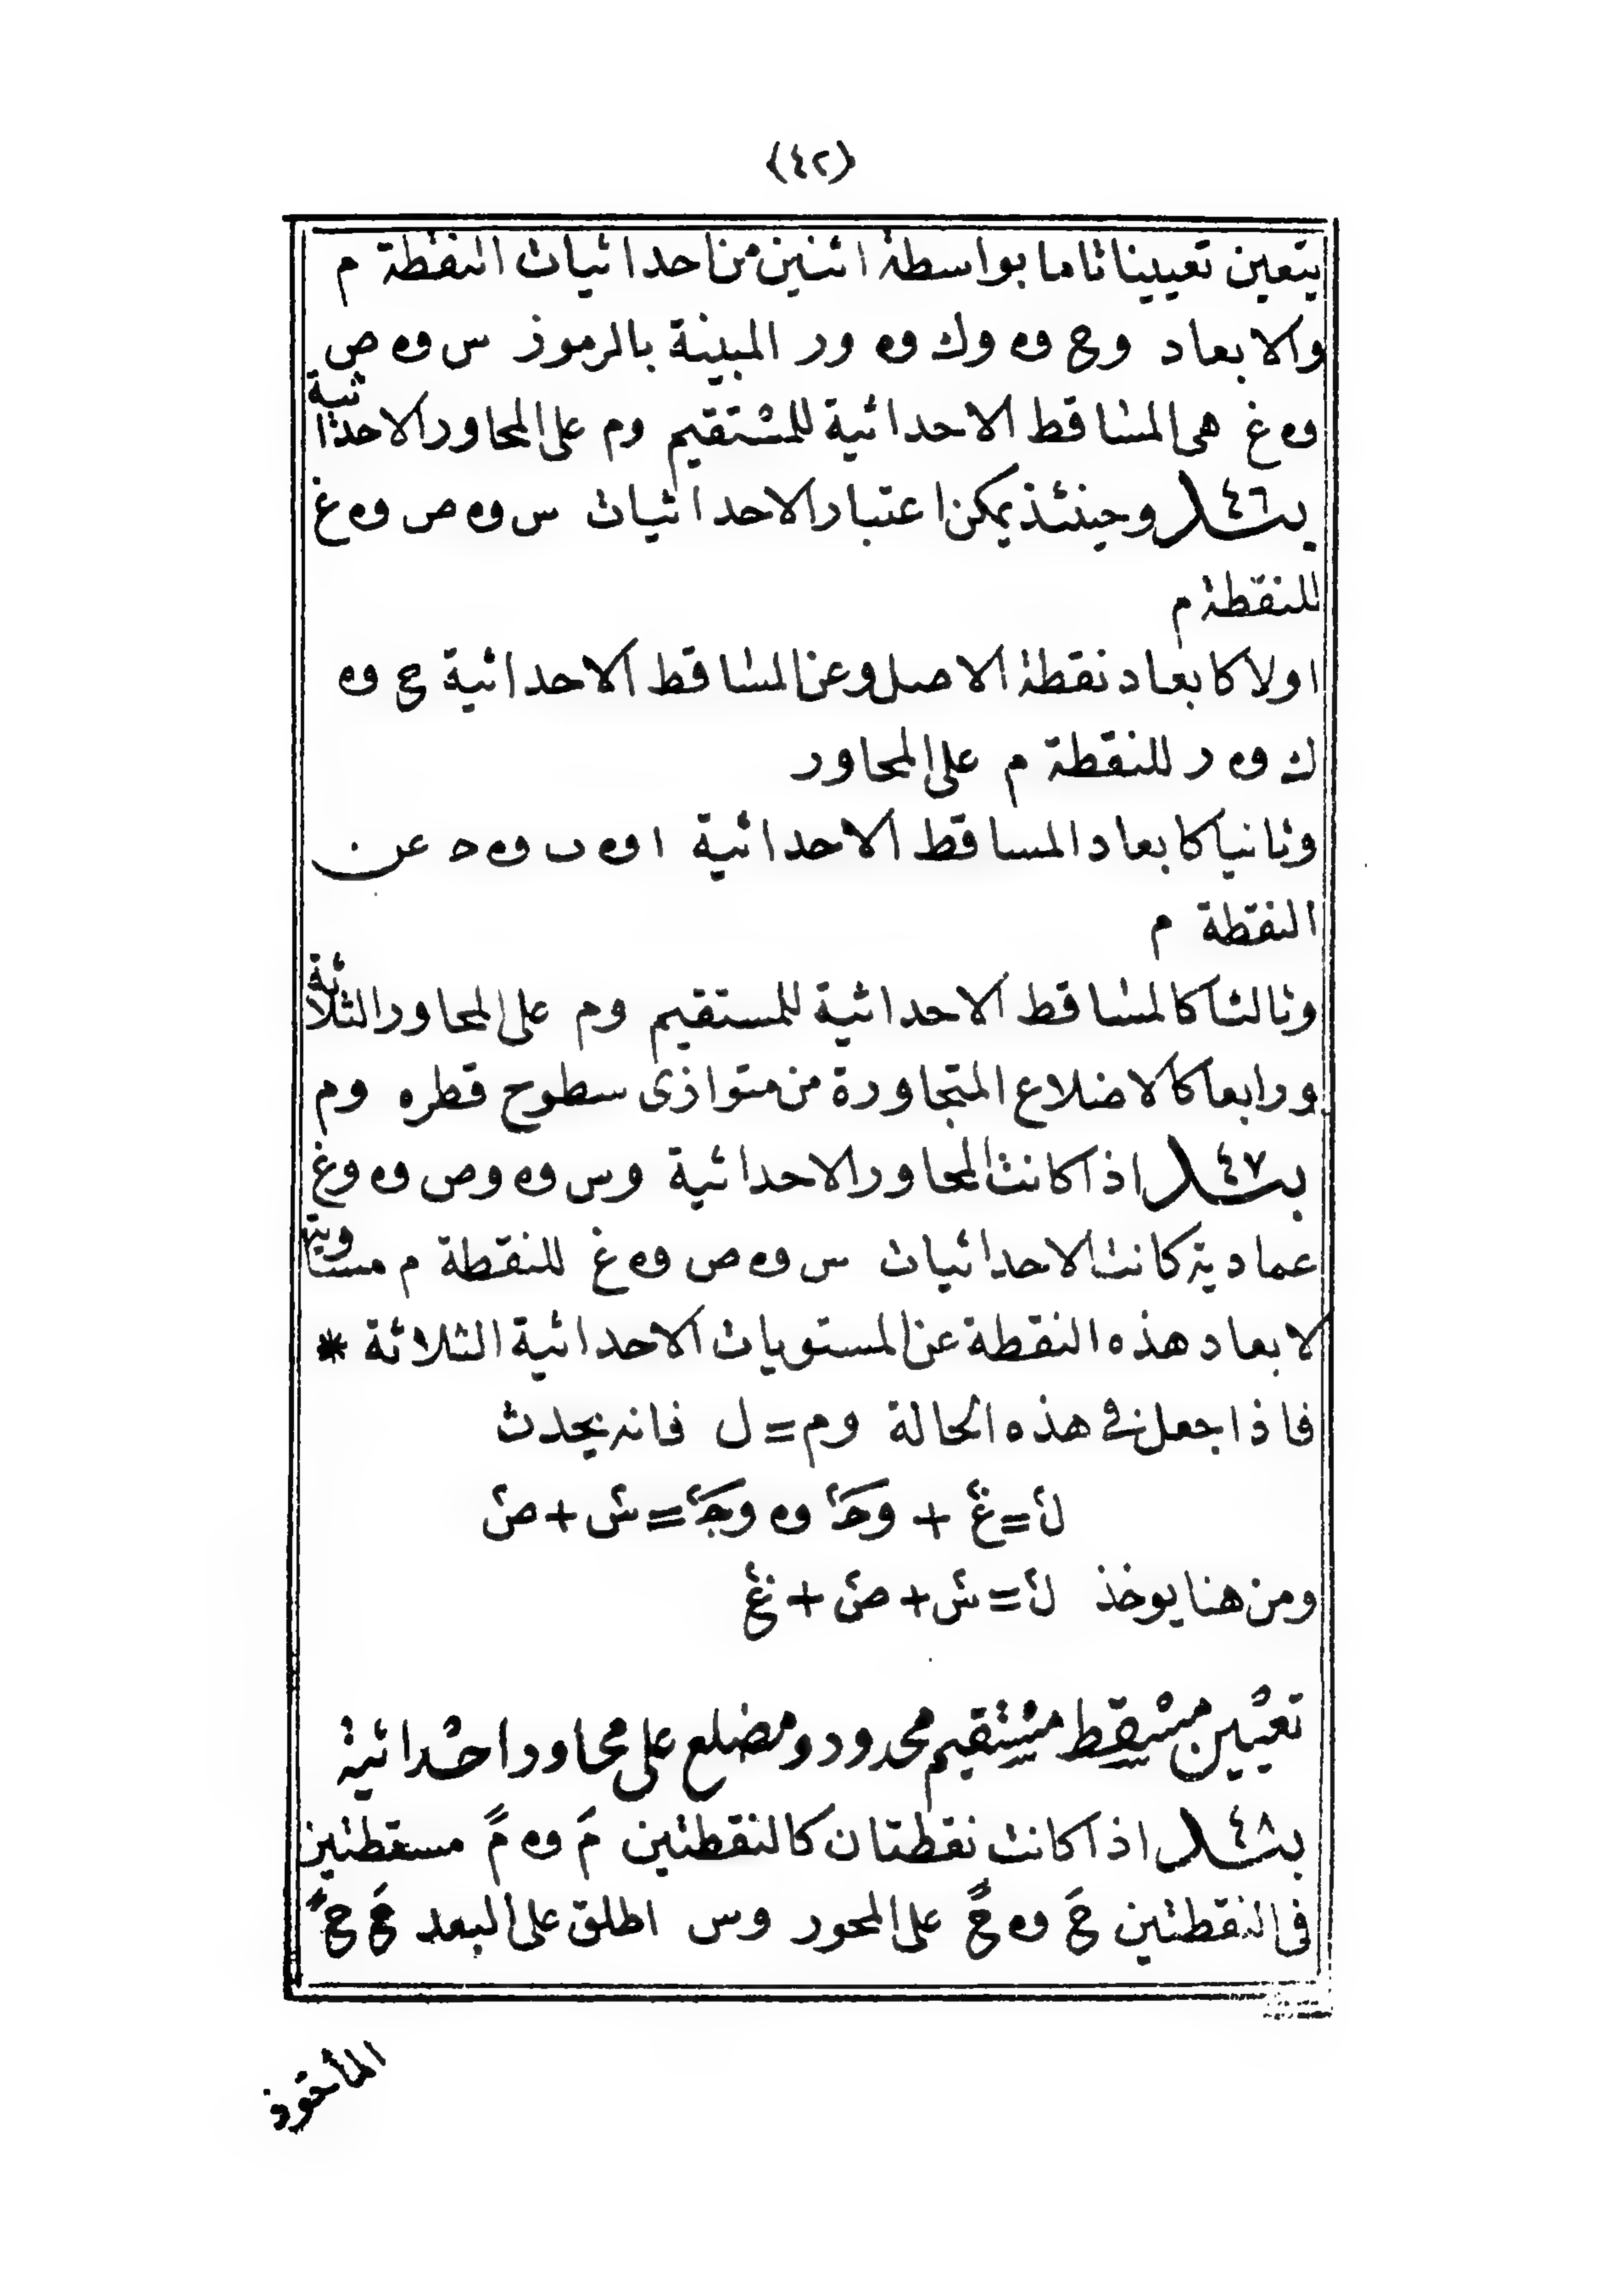 (٤٢)
يتعين تعيينا تاما بواسطة اثنين من احداثيات النقطة م
والابعاد وح وه وك وه ور المبينة بالرموز س وه ص
وه غ هى المساقط الاحداثية للمستقيم وم على المحاور الاحداثية
بند ٤٦ وحينئذ يمكن اعتبار الاحداثيات س وه ص وه غ
للنقطة م
اولا كابعاد نقطة الاصل و عن المساقط الاحداثية ح وه
ك وه ر للنقطة م على المحاور
وثانيا كابعاد المساقط الاحداثية ا وه ب وه ح عن
النقطة م
وثالثا كالمساقط الاحداثية للمستقيم وم على المحاور الثلاثة
ورابعا كالاضلاع المتجاورة من متوازى سطوح قطره وم
بند ٤٧ اذا كانت المحاور الاحداثية وس وه وص وه وغ
عمادية كانت الاحداثيات س وه ص وه غ للنقطة م مساوية
لابعاد هذه النقطة عن المستويات الاحداثية الثلاثة *
فاذا جعل فى هذه الحالة وم = ل فانه يحدث
ل٢ = غ٢ + وح٢ وه وح٢ = س٢ + ص٢
ومن هنا يوخذ ل٢ = س٢ + ص٢ + غ٢
تعيين مسقط مستقيم محدود ومضلع على محاور احداثية
بند ٤٨ اذا كانت نقطتان كالنقطتين مَ وه مً مسقطتين
فى النقطتين حَ وه حً على المحور وس اطلق على البعد حَ حً
المأخوذ